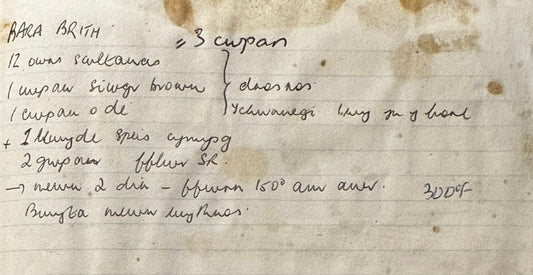 BARA BRITH
= 3 cwpan
12 owns sultanas
1 cwpan siwgr brown } dros nos
1 cwpan o de ychwanegi wy yn y bore
+ 1 llwyde speis cymysg
2 gwpan fflwr SR.
→ mewn 2 din - ffwrn 150° am awr. 300°F
Bwyta mewn wythnos.